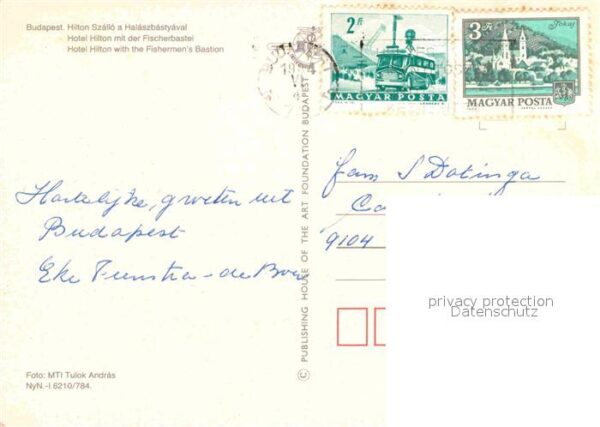 Budapest. Hilton Szálló a Halászbástyával
Hotel Hilton mit der Fischerbastei
Hotel Hilton with the Fishermen's Bastion
2 Ft
MAGYAR POSTA
3 Ft
Tokaj
MAGYAR POSTA
Hartelijke, groeten uit
Budapest
Eke de Boer
Fam S Dotinga
9104
© PUBLISHING HOUSE OF THE ART FOUNDATION BUDAPEST
privacy protection
Datenschutz
Foto: MTI Tulok András
NyN.-I.6210/784.